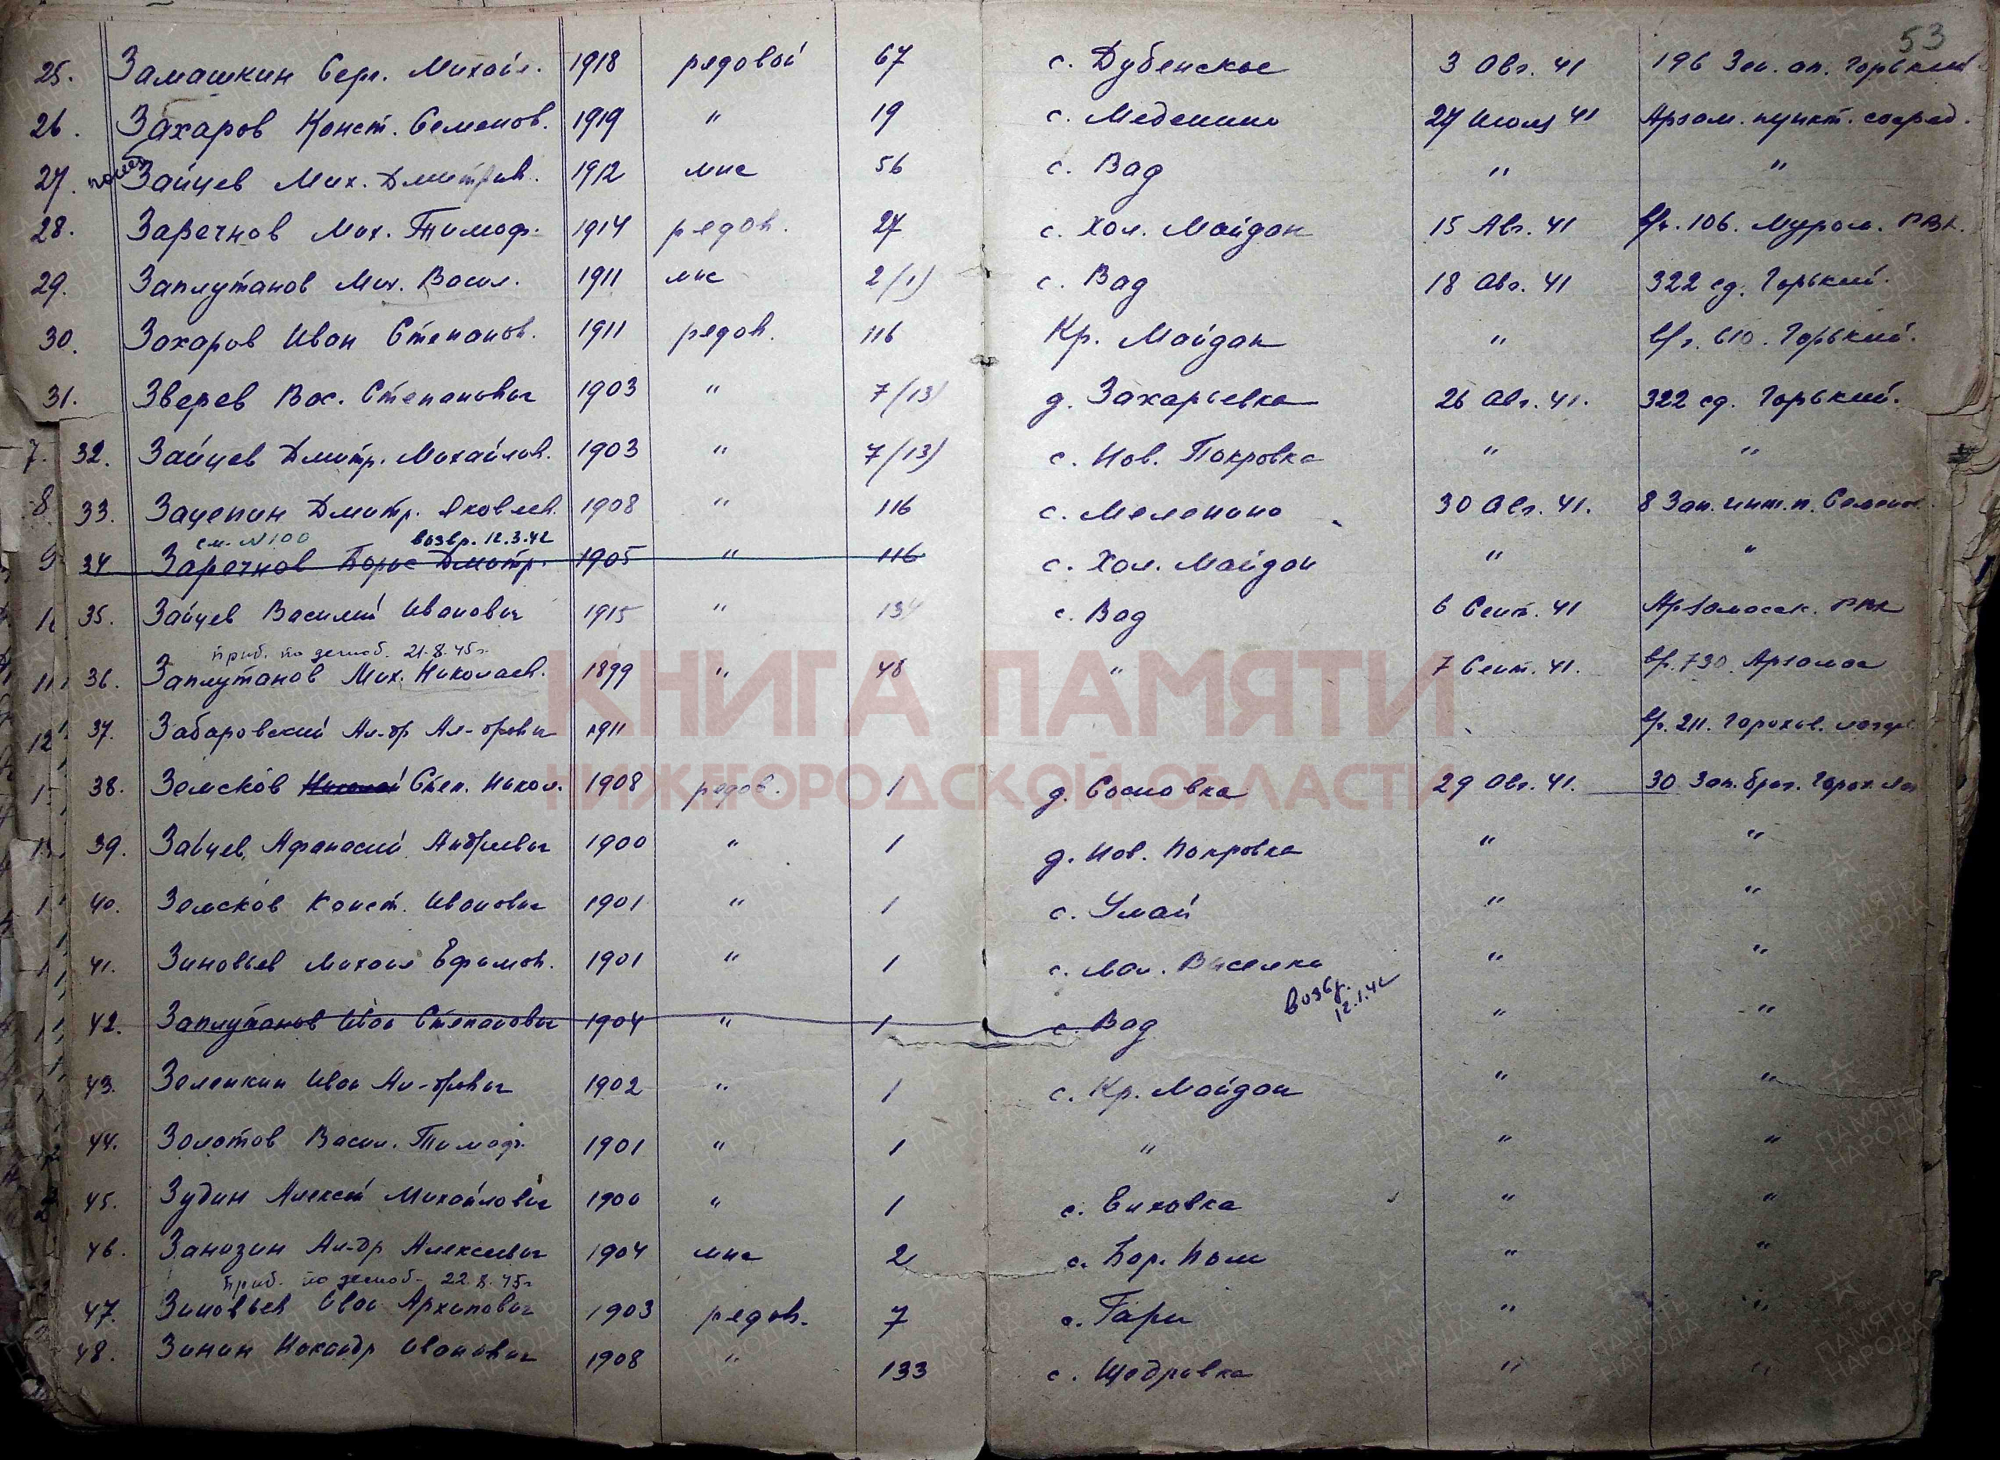 53
25. Замашкин Серг. Михайл. 1918 рядовой 67 с. Дубенское 3 Авг. 41 196 Зен. ап. Горький
26. Захаров Конст. Семенов. 1919 " 19 с. Меленино 27 Июля 41 Арзам. пункт. сосред.
27. Зайцев Мих. Дмитрив. 1912 мнс 56 с. Вад " "
28. Заречнов Мих. Тимоф. 1914 рядов. 27 с. Хол. Майдан 15 Авг. 41 106. Муром. РВК.
29. Заплутанов Мих. Васил. 1911 мнс 2/(1) с. Вад 18 Авг. 41 322 сд. Горький.
30. Захаров Иван Степанов. 1911 рядов. 116 Кр. Майдан " 610. Горький.
31. Зверев Вас. Степанович 1903 " 7/(13) д. Захарьевка 26 Авг. 41. 322 сд. Горький.
32. Зайцев Дмитр. Михайлов. 1903 " 7/(13) с. Нов. Покровка " "
33. Зацепин Дмитр. Яковлев. 1908 " 116 с. Меленино 30 Авг. 41. 8 Зап. инж. п. Семенов.
см. N100 возвр. 12.3.42
34 Заречнов Борис Дмитр. 1905 " 116 с. Хол. Майдан " "
35. Зайцев Василий Иванович 1915 " 134 с. Вад 6 Сент. 41 Арзамасск. РВК
Приб. по демоб. 21.8.45г.
36. Заплутанов Мих. Николаев. 1899 " 48 " 7 Сент. 41. 730. Арзамас
37. Забаровский Ал-др Ал-дрович 1911 211. Горохов. лагерь
38. Земсков Николай Степ. Никол. 1908 рядов. 1 д. Сосновка 29 Авг. 41. 30 Зап. бриг. Горох. Лаг
39. Зайцев Афанасий Андреевич 1900 " 1 д. Нов. Покровка " "
40. Земсков Конст. Иванович 1901 " 1 с. Умай " "
41. Зиновьев Михаил Ефимов. 1901 " 1 с. Мал. Виселка " "
возвр. 12.1.42
42. Заплутанов Иван Степанович 1904 " 1 с. Вад " "
43. Зеленкин Иван Ал-дрович 1902 " 1 с. Кр. Майдан " "
44. Золотов Васил. Тимоф. 1901 " 1 " " "
45. Зудин Алексей Михайлович 1900 " 1 с. Елховка " "
46. Занозин Ал-др Алексеевич 1904 мнс 2 с. Бор. Поле " "
Приб. по демоб. 22.8.45г
47. Зиновьев Иван Архипович 1903 рядов. 7 с. Гари " "
48. Зинин Никандр Иванович 1908 " 133 с. Щедровка " "
КНИГА ПАМЯТИ
НИЖЕГОРОДСКОЙ ОБЛАСТИ